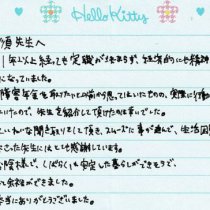 Hello Kitty
須先生へ
1年以上経っても定職が決まらず、経済的にも精神
になっていました。
障害年金を取りたいと以前から思ってはいたものの、実際に行動
いたので、先生を紹介して頂けたのは幸いでした。
聞き取りをして頂き、スムーズに事が運んで、生活困
さった先生にはとても感謝しています。
お陰様で、しばらくは安定した暮らしができそうで、
余裕ができました。
本当にありがとうございました。